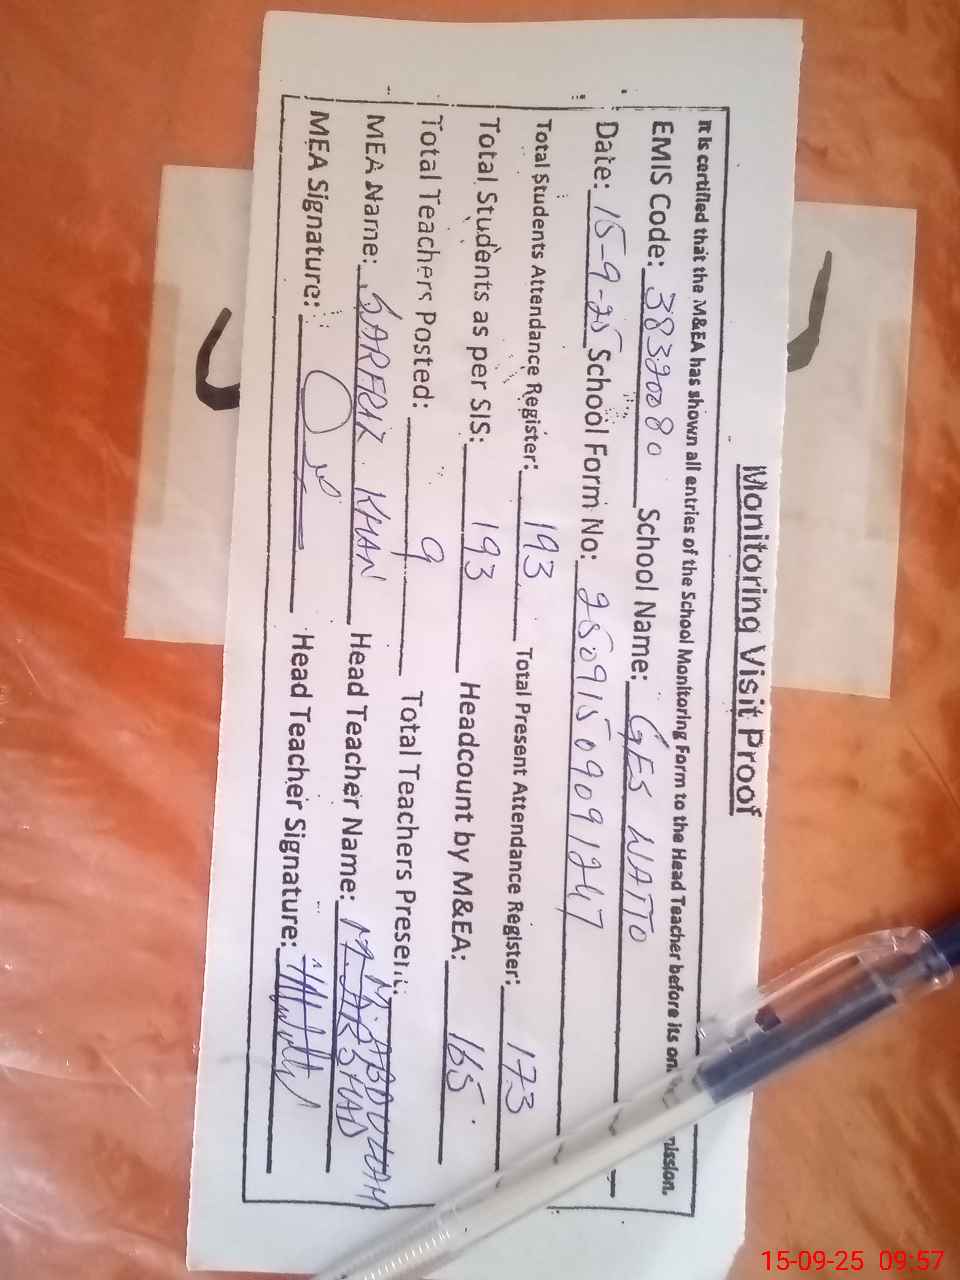 Monitoring Visit Proof
It is certified that the M&EA has shown all entries of the School Monitoring Form to the Head Teacher before its
EMIS Code: 38320080 School Name: GES WATTO
Date: 15-9-25 School Form No: 250915090901247
Total Students Attendance Register: 193 Total Present Attendance Register: 173
Total Students as per SIS: 193 Headcount by M&EA: 165
Total Teachers Posted: 9 Total Teachers Present:
MEA Name: SARFRIZ KHAN Head Teacher Name: M. ARSHAD
MEA Signature: Head Teacher Signature:
15-09-25 09:57